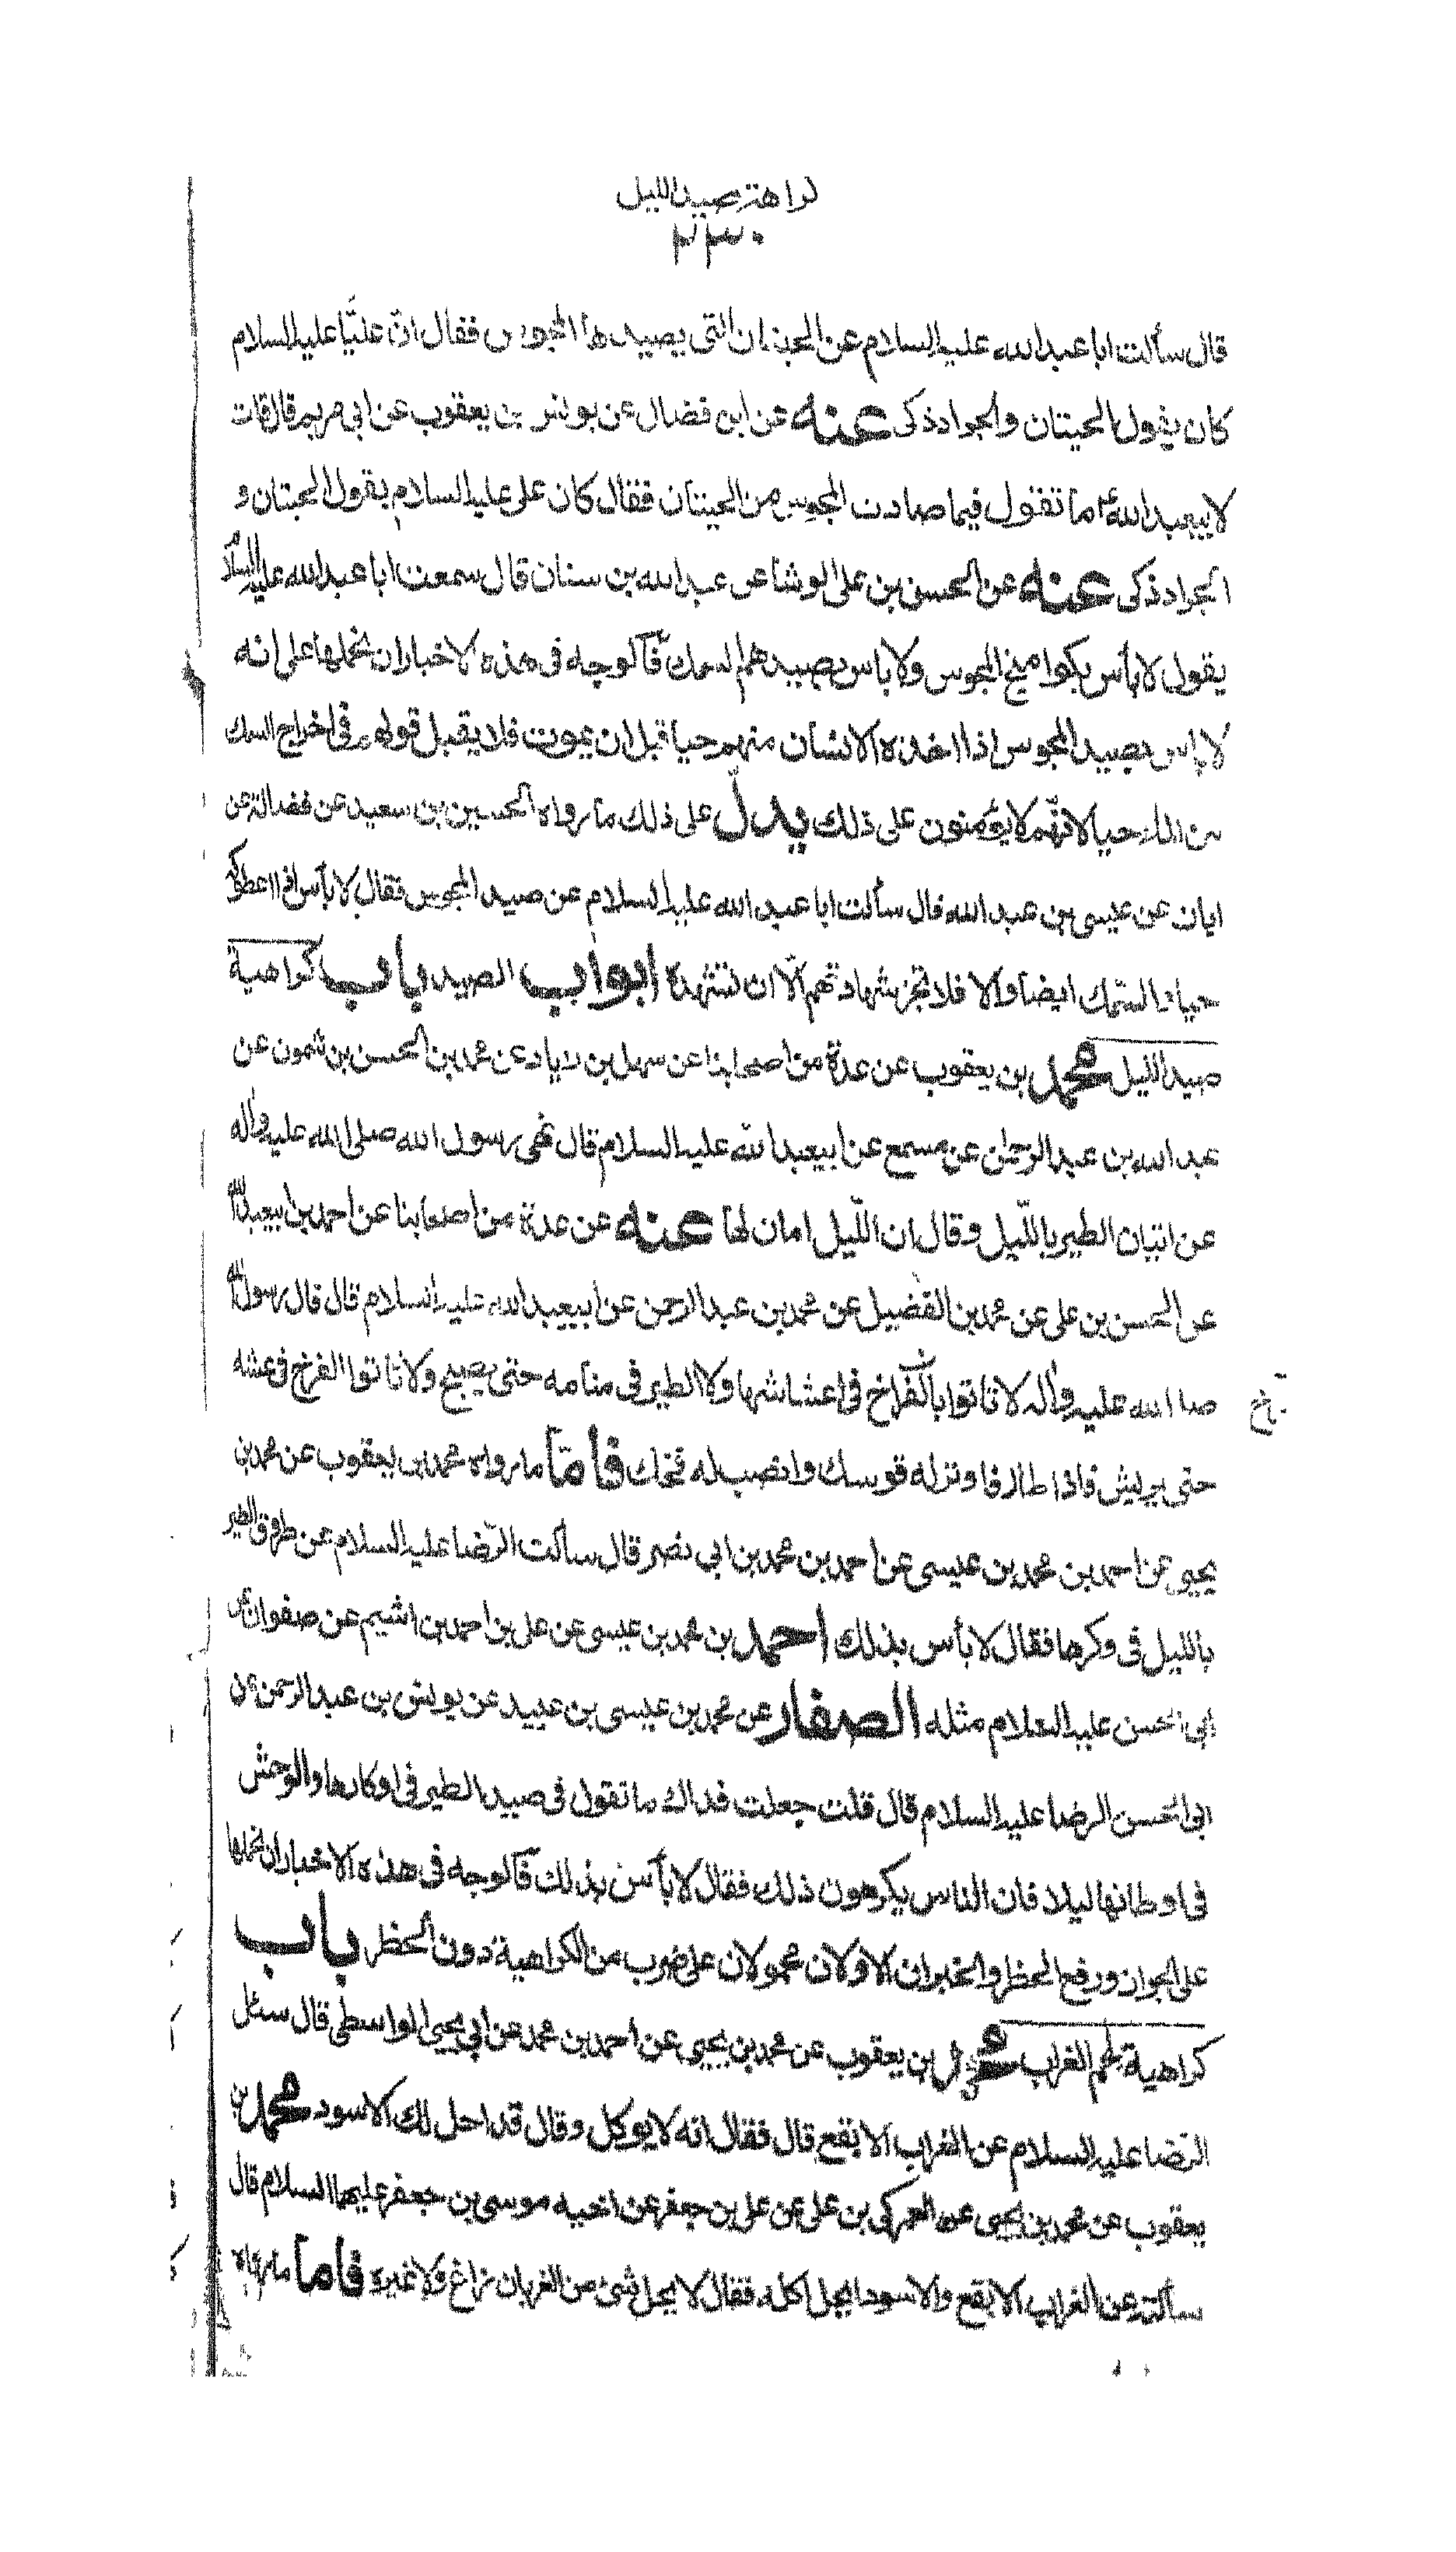 كراهة صيد الليل
٢٣٠
قال سألت ابا عبد الله عليه السلام عن الحيتان التى يصيدها المجوس فقال انّ عليّا عليه السلام
كان يقول الحيتان والجراد ذكى عنه عن ابن فضال عن يونس بن يعقوب عن ابى مريم قال قلت
لابيعبد الله ع ما تقول فيما صادت المجوس من الحيتان فقال كان على عليه السلام يقول الحيتان و
الجراد ذكى عنه عن الحسن بن على الوشا عن عبد الله بن سنان قال سمعت ابا عبد الله عليه السلام
يقول لا بأس بكوامیخ المجوس ولا باس بصيدهم السمك فالوجه فى هذه الاخبار ان نحملها على انه
لا باس بصيد المجوس اذا اخذه الانسان منهم حيا قبل ان يموت فلا يقبل قولهم فى اخراج السمك
من الماء حيا لانّهم لا يؤمنون على ذلك يدلّ على ذلك ما رواه الحسين بن سعيد عن فضالة عن
ابان عن عيسى بن عبد الله قال سألت ابا عبد الله عليه السلام عن صيد المجوس فقال لا بأس اذا اعطوكه
حيا والسّمك ايضا والا فلا تجز شهادتهم الّا ان تشهده ابواب الصيد باب كراهية
صيد الليل محمد بن يعقوب عن عدة من اصحابنا عن سهل بن زياد عن محمد بن الحسن بن شمون عن
عبد الله بن عبد الرحمن عن مسمع عن ابيعبد الله عليه السلام قال نهى رسول الله صلى الله عليه وآله
عن اتيان الطير بالليل وقال ان الليل امان لها عنه عن عدة من اصحابنا عن احمد بن ابيعبد الله
عن الحسن بن على عن محمد بن الفضيل عن محمد بن عبد الرحمن عن ابيعبد الله عليه السلام قال قال رسول الله
صلى الله عليه وآله لا تاتوا بالفراخ فى اعشاشها ولا الطير فى منامه حتى يصبح ولا تاتوا الفرخ فى عشه
حتى يريش فاذا طار فاوتر له قوسك وانصب له فخك فامّا ما رواه محمد بن يعقوب عن محمد بن
يحيى عن احمد بن محمد بن عيسى عن احمد بن محمد بن ابى نصر قال سألت الرّضا عليه السلام عن طروق الطير
بالليل فى وكرها فقال لا بأس بذلك احمد بن محمد بن عيسى عن على بن احمد بن اشيم عن صفوان عن
ابى الحسن عليه السلام مثله الصفار عن محمد بن عيسى بن عبيد عن يونس بن عبد الرحمن عن
ابى الحسن الرضا عليه السلام قال قلت جعلت فداك ما تقول فى صيد الطير فى اوكارها والوحش
فى اوطانها ليلا فان الناس يكرهون ذلك فقال لا بأس بذلك فالوجه فى هذه الاخبار ان نحملها
على الجواز ورفع الحظر والخبران الاولان محمولان على ضرب من الكراهية دون الحظر باب
كراهية لحم الغراب محمد بن يعقوب عن محمد بن يحيى عن احمد بن محمد عن ابى يحيى الواسطى قال سئل
الرّضا عليه السلام عن الغراب الابقع قال فقال انه لا يوكل وقال قد احل لك الاسود محمد بن
يعقوب عن محمد بن يحيى عن العمركى بن على عن على بن جعفر عن اخيه موسى بن جعفر عليهما السلام قال
سألته عن الغراب الابقع والاسود ايحل اكله فقال لا يحل شئ من الغربان زاغ ولا غيره فاما ما رواه